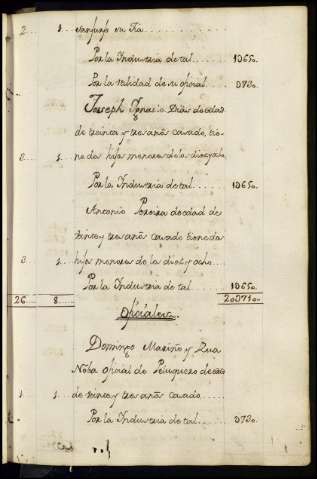 2 1 en su
Por la Industria de tal 1065o.
Por la utilidad de su oficial 073o.
Joseph Ignacio Dias de edad
de treinta y tres anõs casado, tie
3 1 ne dos hijos menores de los diez y ocho
Por la Industria de tal 1065o.
Antonio Pereira de edad de
treinta y tres anõs casado tiene dos
3 1 hijos menores de los diez y ocho
Por la Industria de tal 1065o.
26 8 20071o.
Oficiales.
Domingo Mariño y Lua
oficial de Peluquero de edad
1 1 de veinte y tres anõs casado
Por la Industria de tal 073o.